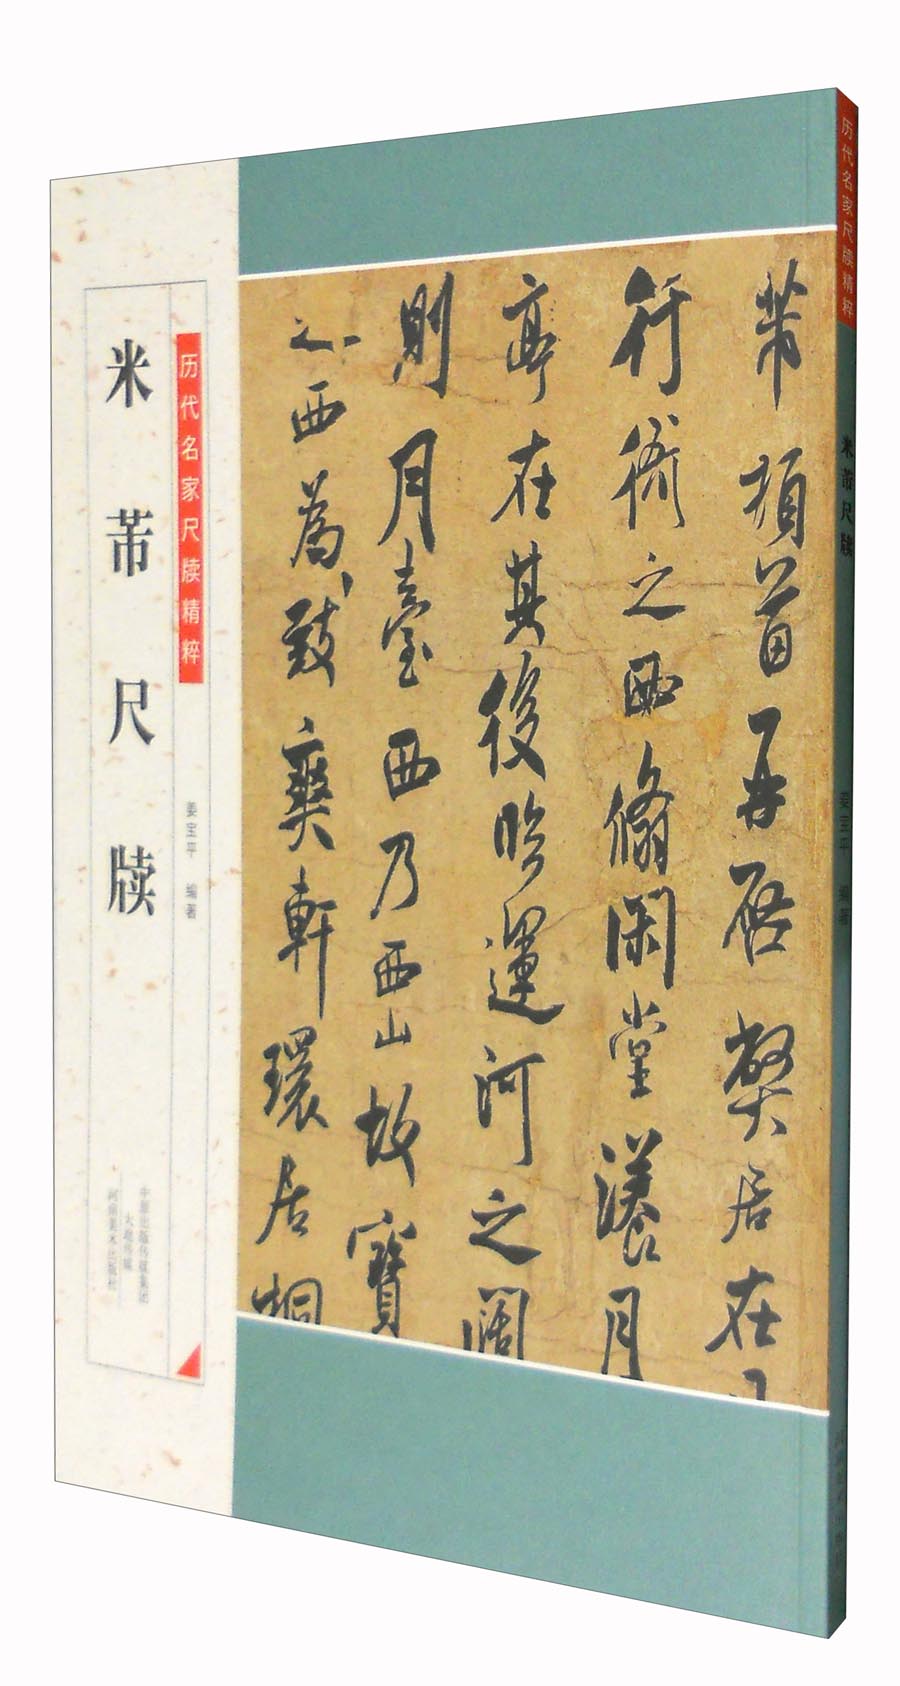 米芾尺牍
历代名家尺牍精粹
姜宝平 编著
中原出版传媒集团
大地传媒
河南美术出版社
芾頓首再啓弊居在
行衙之西脩閑堂漾月
亭在其後臨運河之闊
則月臺西乃西山故寶
之西爲致爽軒環居桐
历代名家尺牍精粹
米芾尺牍
姜宝平 编著